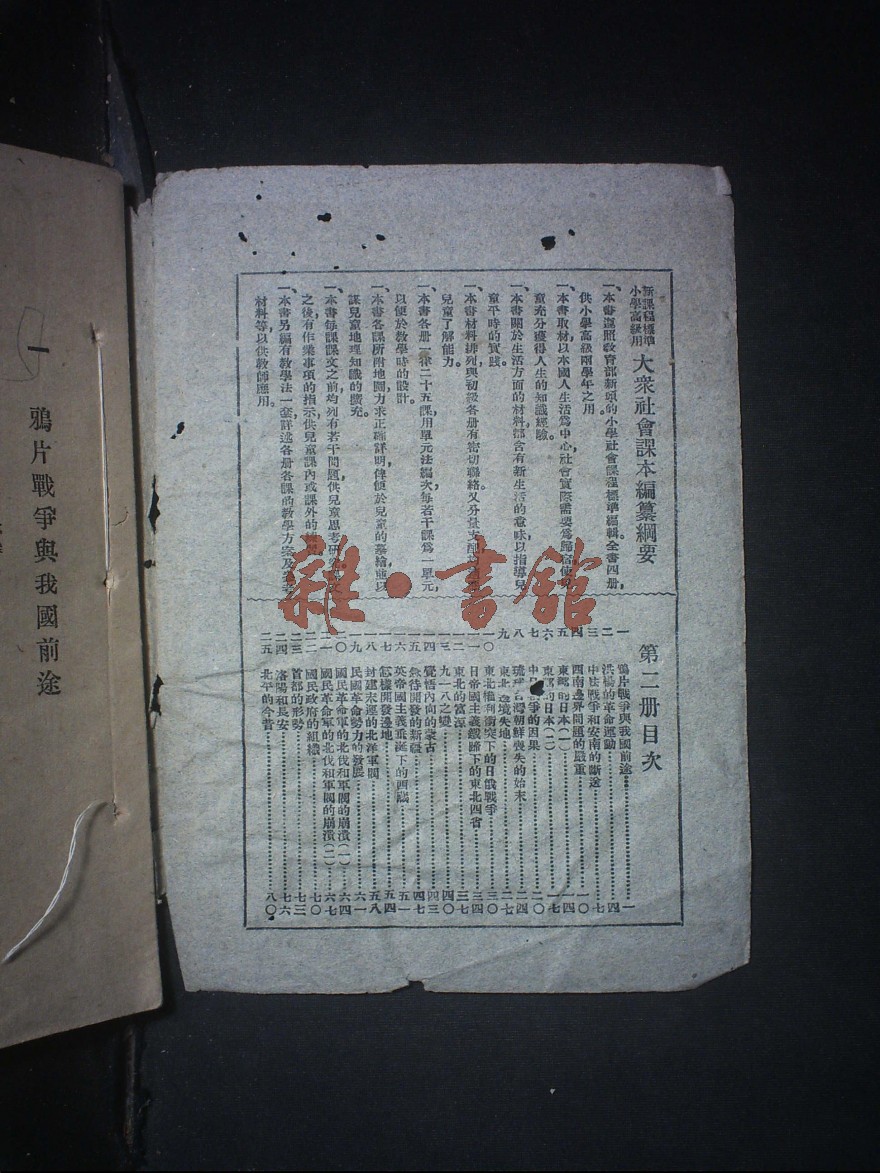 新課程標準
小學高級用
大衆社會課本編纂綱要
一、本書遵照教育部新頒的小學社會課程標準編輯全書四册，
供小學高級兩學年之用。
一、本書取材以本國人生活爲中心社會實際需要爲歸宿使兒
童充分獲得人生的知識經驗。
一、本書關於生活方面的材料都含有新生活的意味以指導兒
童平時的實踐。
一、本書材料排列與初級各册有密切聯絡又分量支配
兒童了解能力。
一、本書各册一律二十五課用單元法編次每若干課爲一單元，
以便於教學時的設計。
一、本書各課所附地圖力求正確詳明俾便於兒童的摹繪並以
謀兒童地理知識的擴充。
一、本書每課課文之前均列有若干問題，供兒童思考研究
之後有作業事項的指示供兒童課內或課外的
一、本書另編有教學法一套詳述各册各課的教學方案及參考
材料等以供教師應用。
第二册目次
一 鴉片戰爭與我國前途 一
二 洪楊的革命運動 四
三 中法戰爭和安南的斷送 七
四 西南邊界問題的嚴重 一〇
五 東鄰的日本(一) 一四
六 東鄰的日本(二) 一七
七 中日戰爭的因果 二〇
八 琉球台灣朝鮮喪失的始末 二四
九 東北邊境失地 二七
一〇 東北權利衝突下的日俄戰爭 三〇
一一 日帝國主義鐵蹄下的東北四省 三四
一二 東北的富源 三七
一三 九一八之變 四〇
一四 覺悟內向的蒙古 四三
一五 亟待開發的新疆 四七
一六 英帝國主義垂涎下的西藏 五一
一七 怎樣開發邊地 五四
一八 封建末運的北洋軍閥 五八
一九 民國革命勢力的發展 六一
二〇 國民革命軍的北伐和軍閥的崩潰(一) 六四
二一 國民革命軍的北伐和軍閥的崩潰(二) 六七
二二 國民政府的組織 七〇
二三 首都的形勢 七三
二四 洛陽和長安 七六
二五 北平的今昔 八〇
一 鴉片戰爭與我國前途
雜·書館